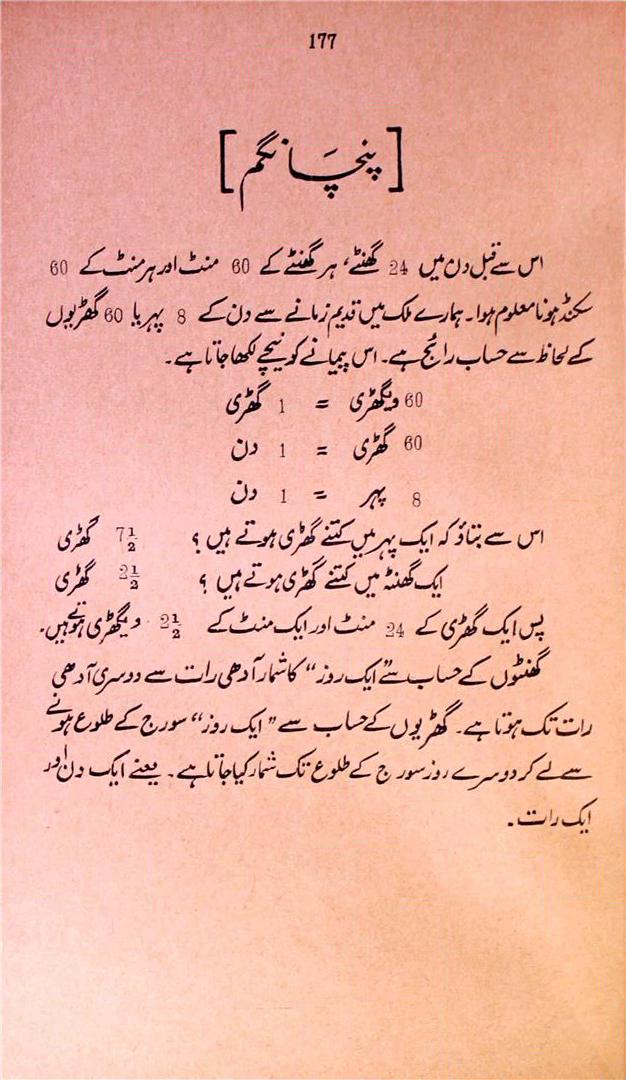 177
[پنچانگم]
اس سے قبل دن میں 24 گھنٹے، ہر گھنٹے کے 60 منٹ اور ہر منٹ کے 60
سکنڈ ہونا معلوم ہوا۔ ہمارے ملک میں قدیم زمانے سے دن کے 8 پہر یا 60 گھڑیوں
کے لحاظ سے حساب رائج ہے۔ اس پیمانے کو نیچے لکھا جاتا ہے۔
60 ویگھڑی = 1 گھڑی
60 گھڑی = 1 دن
8 پہر = 1 دن
اس سے بتاؤ کہ ایک پہر میں کتنے گھڑی ہوتے ہیں ؟ 7½ گھڑی
ایک گھنٹہ میں کتنے گھڑی ہوتے ہیں ؟ 2½ گھڑی
پس ایک گھڑی کے 24 منٹ اور ایک منٹ کے 2½ ویگھڑی ہوتے ہیں۔
گھنٹوں کے حساب سے ”ایک روز“ کا شمار آدھی رات سے دوسری آدھی
رات تک ہوتا ہے۔ گھڑیوں کے حساب سے ”ایک روز“ سورج کے طلوع ہونے
سے لے کر دوسرے روز سورج کے طلوع تک شمار کیا جاتا ہے۔ یعنے ایک دن اور
ایک رات۔